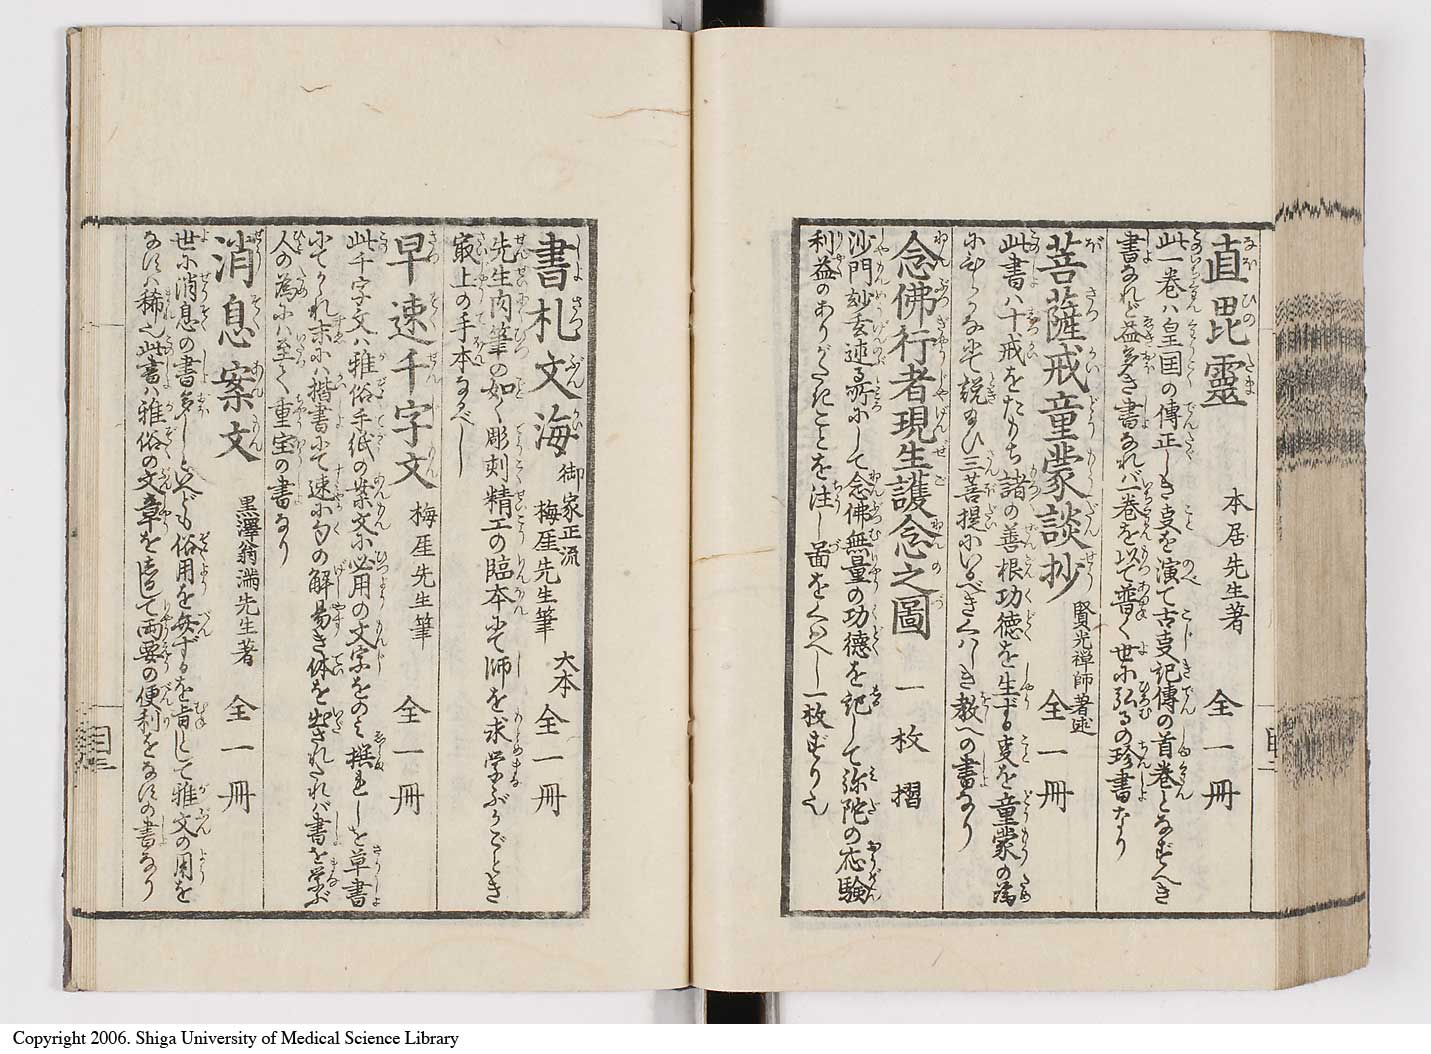 直毘靈 本居先生著 全一冊
此一巻ハ皇国の傳正しき叓を演て古叓記傳の首巻となすべき
書なれど益多き書なれバ一巻を以て普く世に弘るの珍書なり
菩薩戒童蒙談抄 賢光禅師著述 全一冊
此書ハ十戒をたもち諸の善根功徳を生ずる叓を童蒙の為
説 三菩提にいるべきくハしき教への書なり
念佛行者現生護念之圖 一枚摺
沙門玅玄述る所にして念佛無量の功徳を記して弥陀の応験
利益のありがたきことを注し啚をくハへし一枚ずり也
書札文海 御家正流 梅厓先生筆 大本 全一冊
先生肉筆の如く彫刻精工の臨本にて師を求学ぶがごとき
最上の手本なるべし
早速千字文 梅厓先生筆 全一冊
此千字文ハ雅俗手紙の案文に必用の文字をのミ撰ミしを草書
にてかれ末にハ楷書にて速に句の解易き体を出されたれバ書を学ぶ
人の為にハ至て重宝の書なり
消息案文 黒澤翁満先生著 全一冊
世に消息の書多しといへども俗用を弁ずるを旨として雅文の用を
なすハ稀也此書ハ雅俗の文章を 両要の便利をなすの書なり
Copyright 2006. Shiga University of Medical Science Library